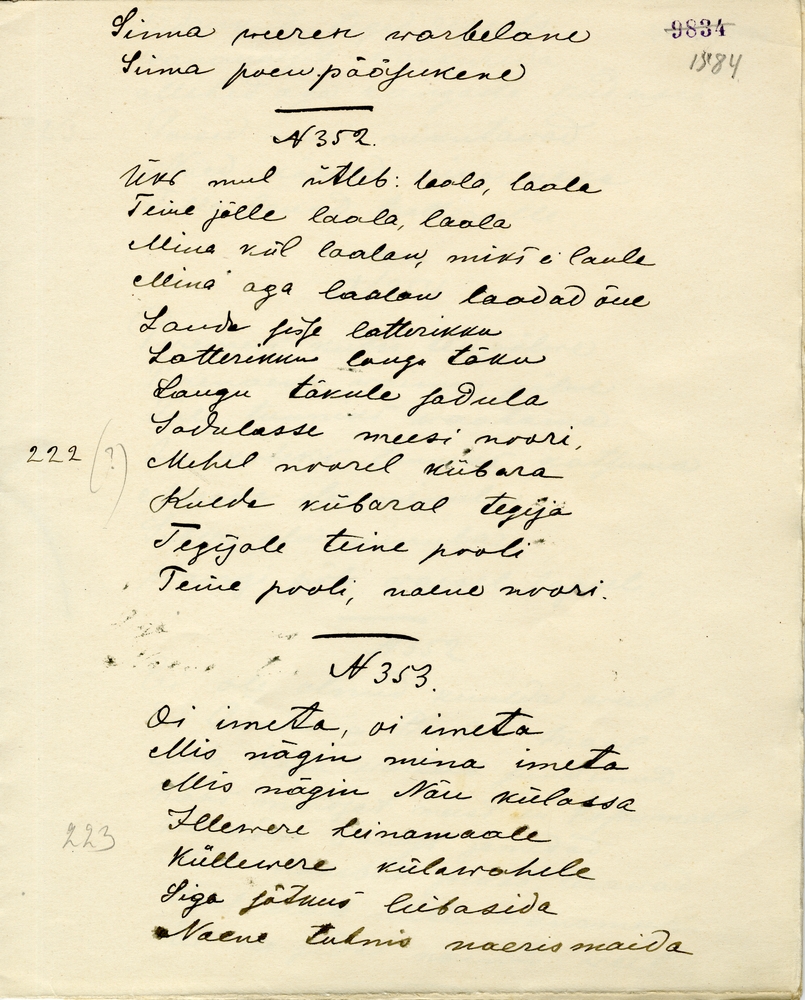 9834
1584
Sinna weeren warbelane
Sinna poen pääsukene
N 352.
Üks mul ütleb: laala, laala
Teine jälle laala, laala
Mina kül laalan, miks ei laale
Mina aga laalan laadad õue
Lauda sisse latterikku
Latterikku laugu täku
Laugu täkule sadula
Sadulasse meesi noori,
222 (?)
Mehel noorel kübara
Kulda kübaral tegija
Tegijale teine pooli
Teine pooli, naene noori.
N 353.
Oi imeta, oi imeta
Mis nägin mina imeta
Mis nägin Näu külassa
Illewere heinamaale
223
Küllewere külawahele
Siga sõtkus leibasida
Naene tuhnis naerismaida